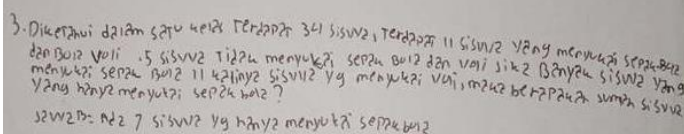 3. Diketahui dalam satu kelas terdapat 34 siswa, terdapat 11 siswa yang menyukai sepak bola
dan bola voli. 5 siswa tidak menyukai sepak bola dan voli jika banyak siswa yang
menyukai sepak bola 11 kalinya siswa yg menyukai voli, maka berapakah jumlah siswa
yang hanya menyukai sepak bola?
Jawab: Ada 7 siswa yg hanya menyukai sepak bola